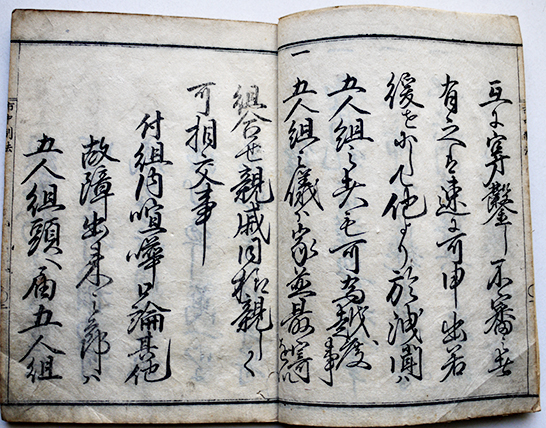 互ニ穿鑿し不審之者
有之者速ニ可申出若
他より於洩聞ハ
五人組之者も可為越度事
一 五人組之儀ハ家並最寄
組合せ親戚同様親しく
可相交事
付組内喧嘩口論其他
故障出来之節ハ
五人組頭へ届五人組
市中制法